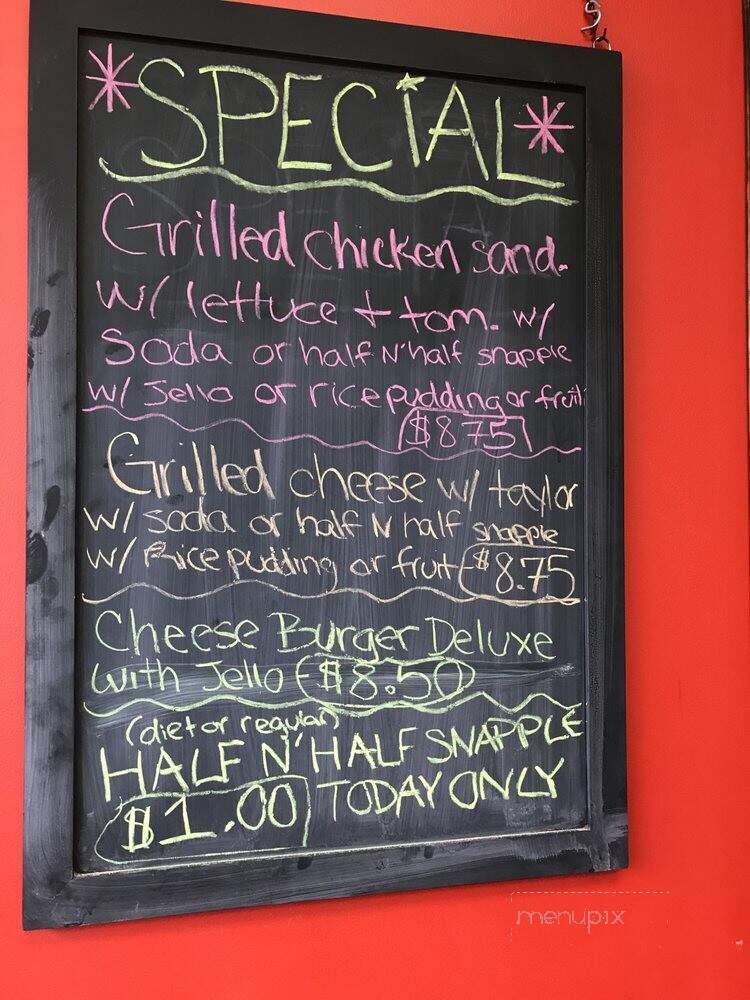 *SPECIAL*
Grilled chicken sand.
w/ lettuce + tom. w/
Soda or half N' half snapple
w/ Jello or rice pudding or fruit
$8.75
Grilled cheese w/ taylor
w/ soda or half N half snapple
w/ Rice pudding or fruit $8.75
Cheese Burger Deluxe
with Jello $8.50
(diet or regular)
HALF N' HALF SNAPPLE
$1.00 TODAY ONLY
menupix